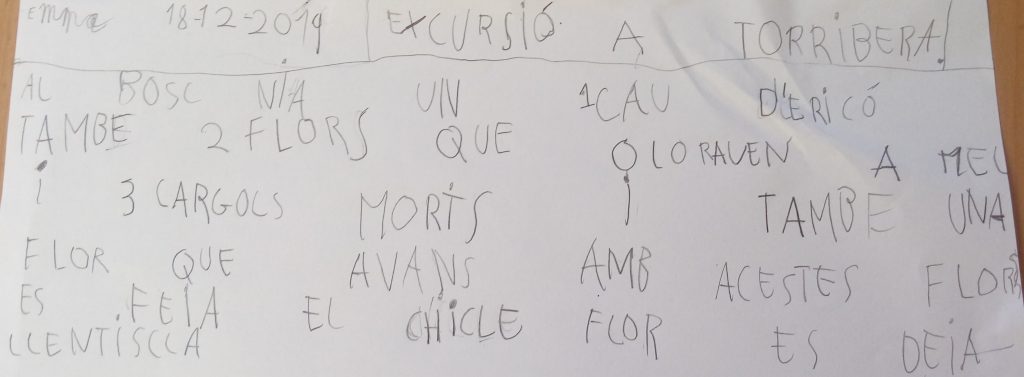 emma 18-12-2019 EXCURSIÓ A TORRIBERA!
AL BOSC N'IA UN 1 CAU D'ERICÓ
TAMBE 2 FLORS QUE OLORAVEN A MEL
i 3 CARGOLS MORTS I TAMBE UNA
FLOR QUE AVANS AMB ACESTES FLORS
ES FEIA EL CHICLE FLOR ES DEIA
LLENTISCLA